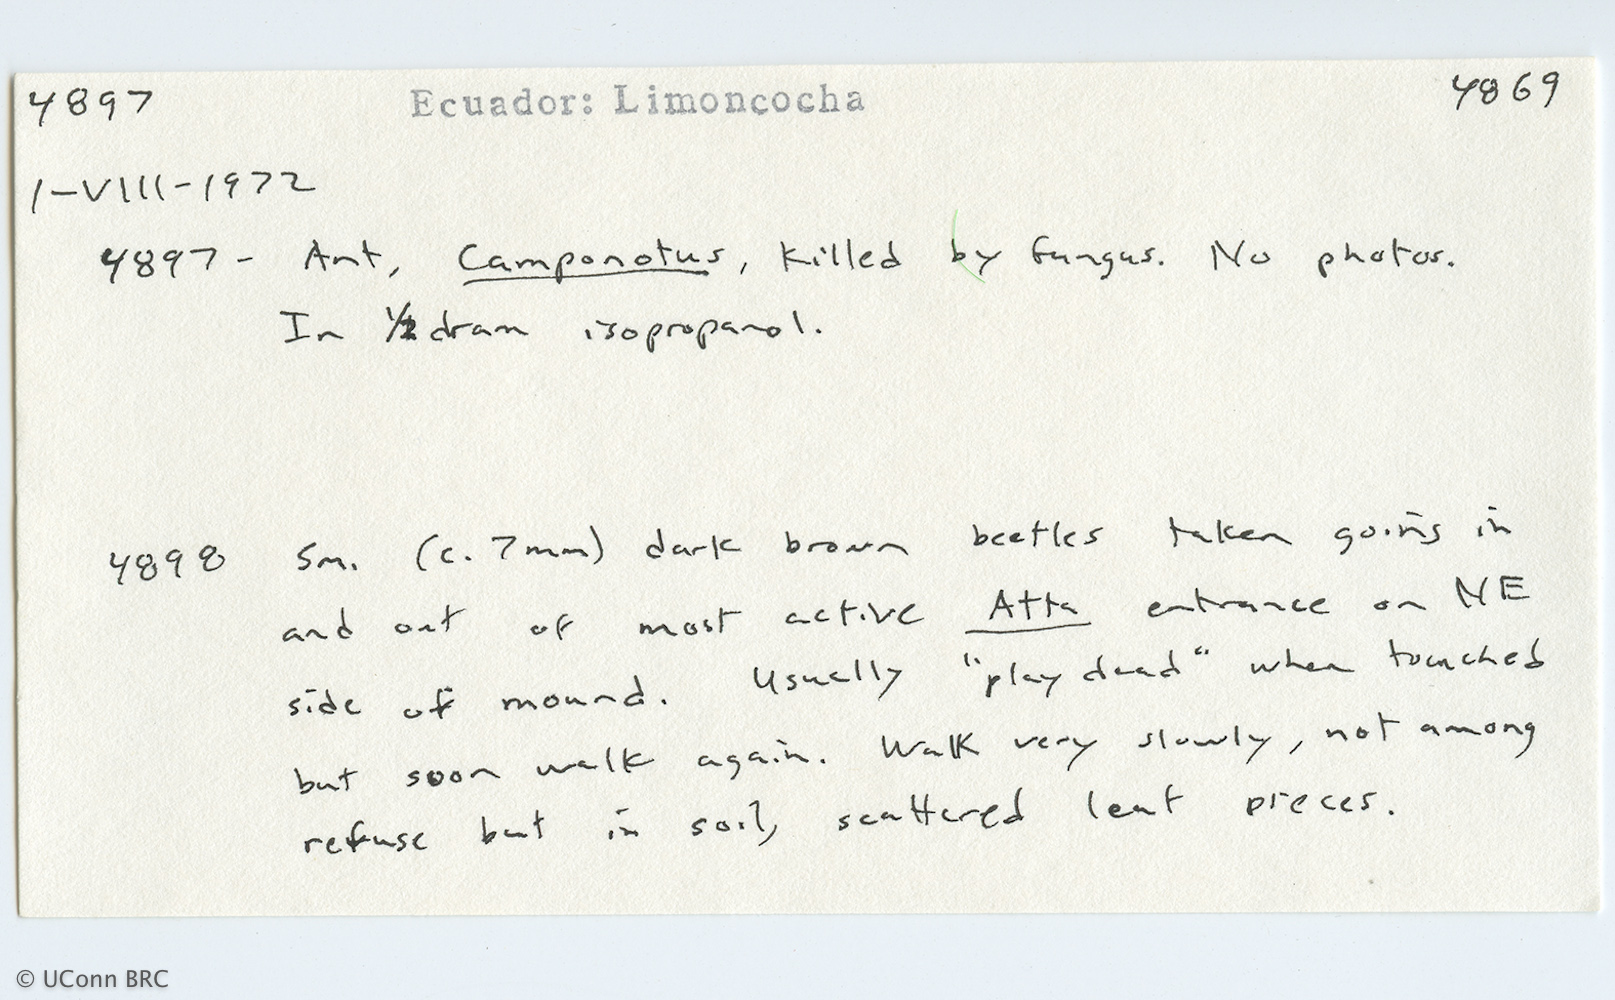 4897 Ecuador: Limoncocha 4869
1-VIII-1972
4897- Ant, Camponotus, killed by fungus. No photos.
In 1/2 dram isopropanol.
4898 Sm. (c. 7mm) dark brown beetles taken going in
and out of most active Atta entrance on NE
side of mound. Usually "play dead" when touched
but soon walk again. Walk very slowly, not among
refuse but in soil, scattered leaf pieces.
© UConn BRC